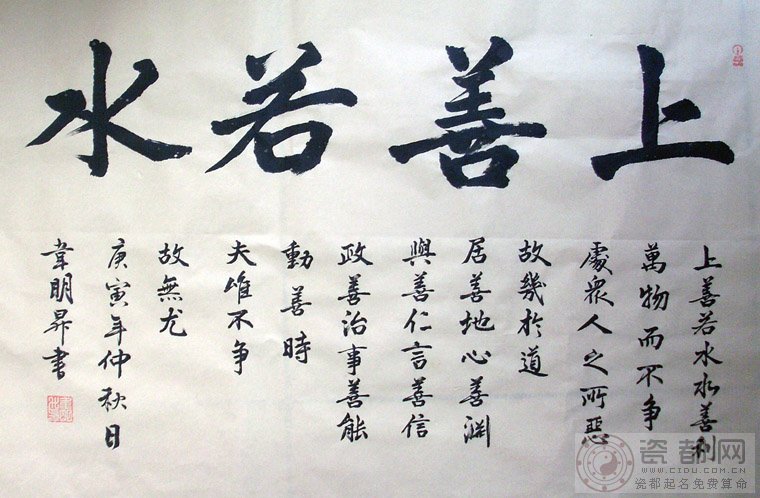 上善若水
上善若水水善利
萬物而不争
處衆人之所惡
故幾於道
居善地心善渊
與善仁言善信
政善治事善能
動善時
夫唯不争
故無尤
庚寅年仲秋日
韋明昇书
瓷都网
WWW.CIDU.COM.CN
瓷都起名免费算命